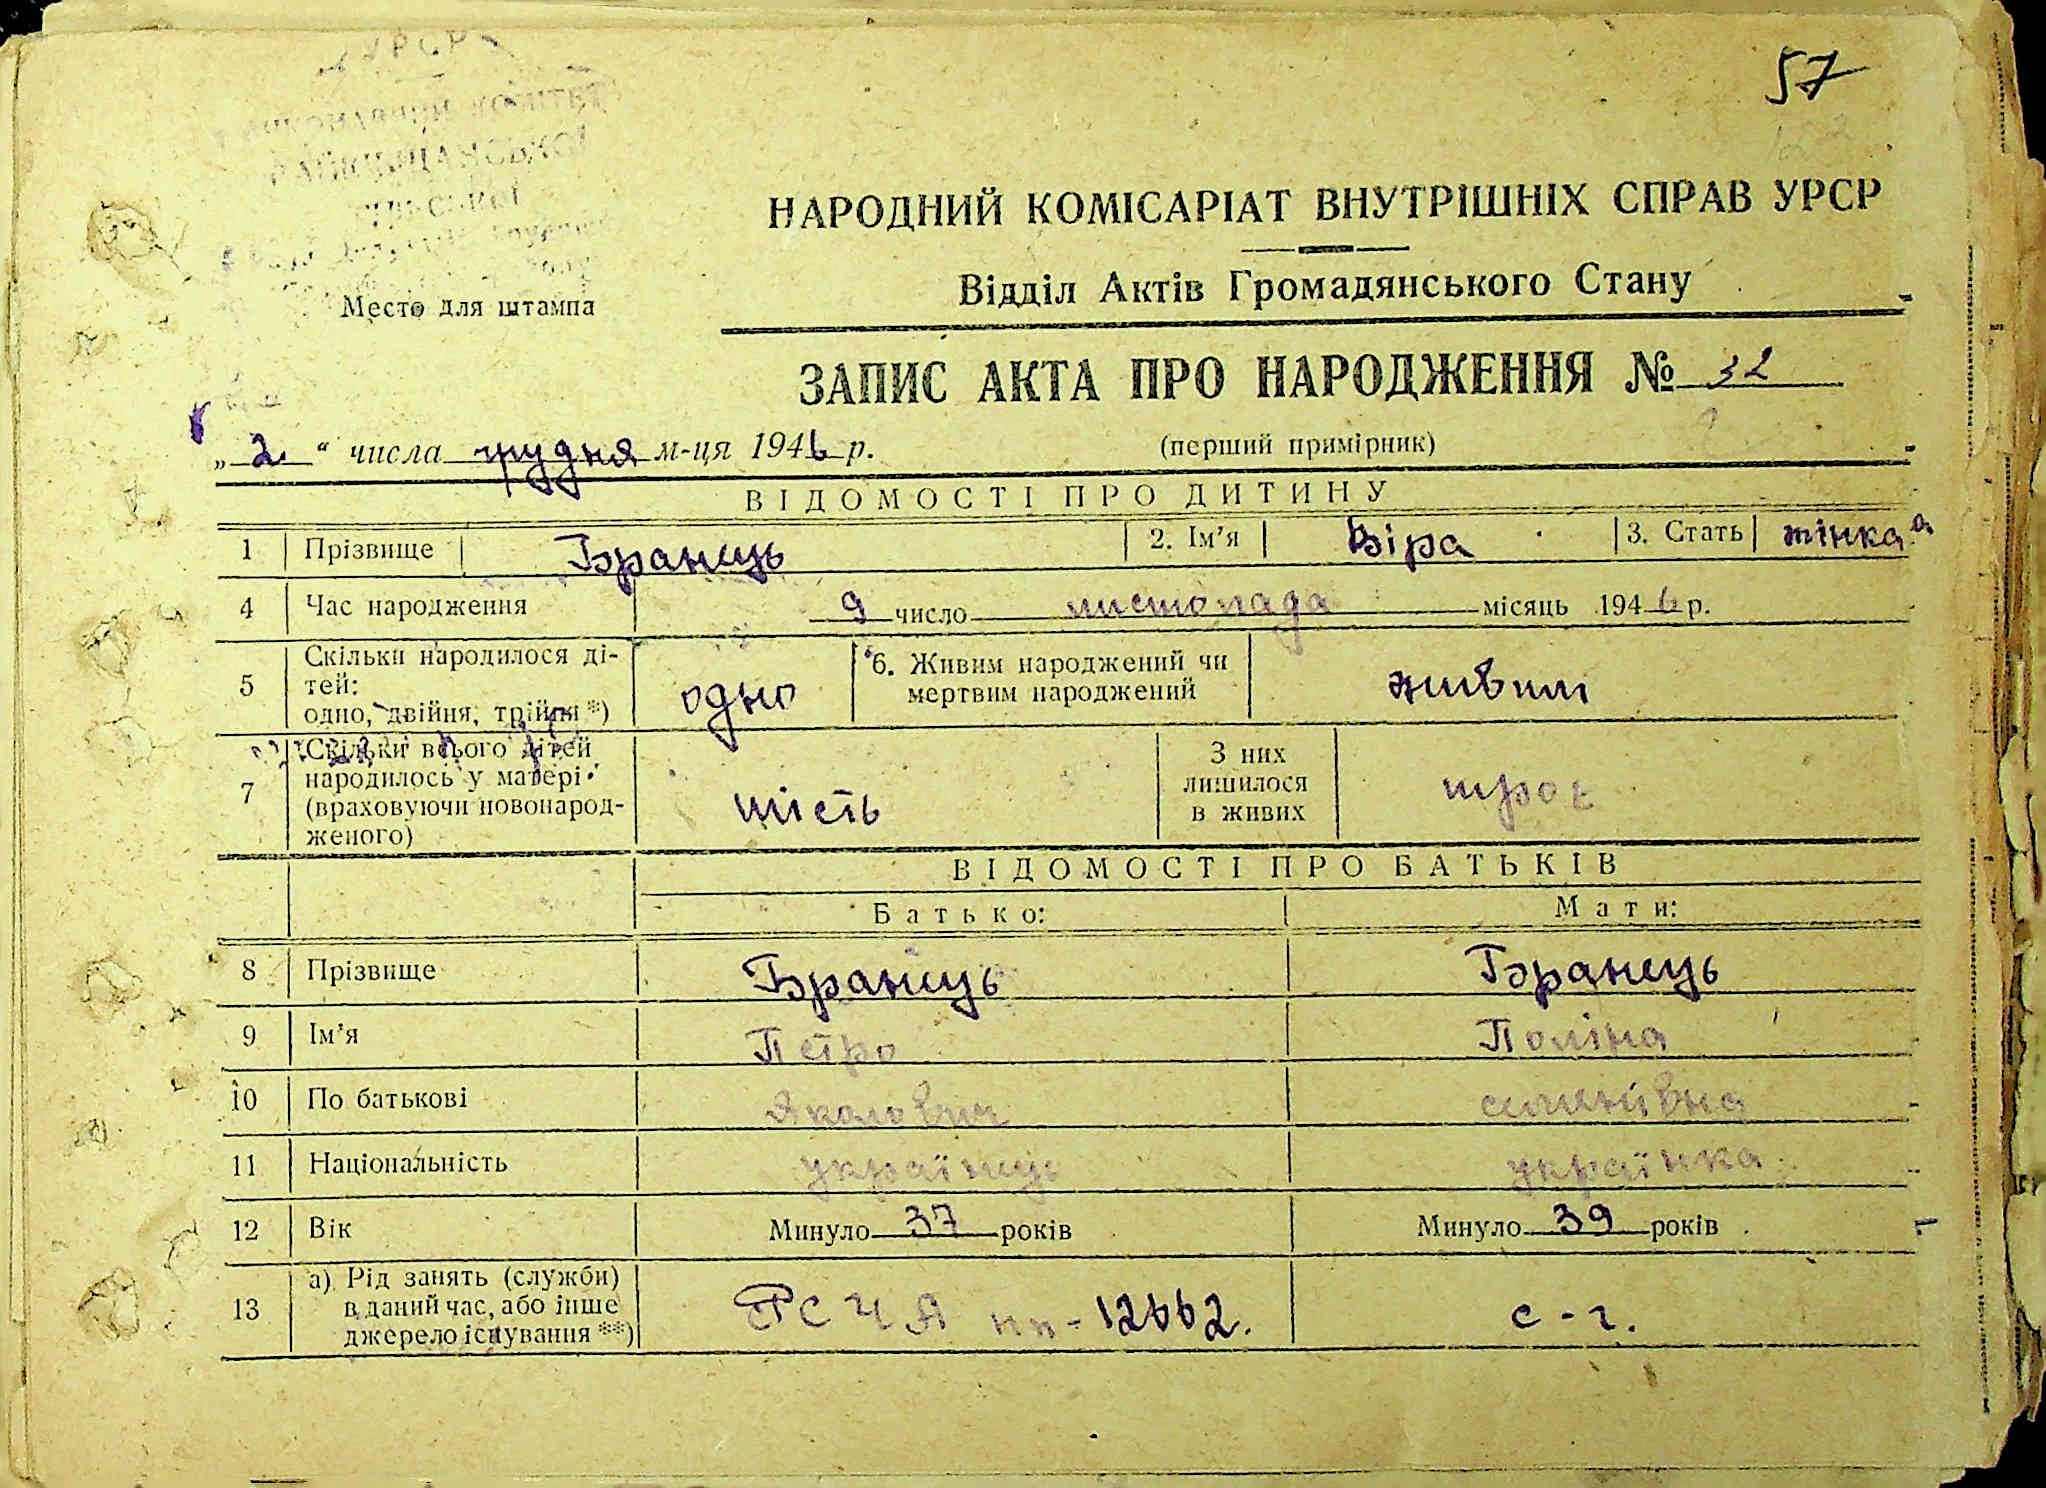 УРСР
57
НАРОДНИЙ КОМІСАРІАТ ВНУТРІШНІХ СПРАВ УРСР
Відділ Актів Громадянського Стану
Место для штампа
ЗАПИС АКТА ПРО НАРОДЖЕННЯ № 32
„ 2 “ числа грудня м-ця 1946 р. (перший примірник)
ВІДОМОСТІ ПРО ДИТИНУ
1 Прізвище Бранець 2. Ім'я Віра 3. Стать жінка
4 Час народження 9 число листопада місяць 1946 р.
5 Скільки народилося ді-
тей:
одно, двійня, трійня *) одно 6. Живим народжений чи
мертвим народжений живим
7 Скільки всього дітей
народилось у матері
(враховуючи новонарод-
женого) шість З них
лишилося
в живих троє
ВІДОМОСТІ ПРО БАТЬКІВ
Батько: Мати:
8 Прізвище Бранець Бранець
9 Ім'я Петро Поліна
10 По батькові Якович
11 Національність українець українка
12 Вік Минуло 37 років Минуло 39 років
13 а) Рід занять (служби)
в даний час, або інше
джерело існування **) РСЧА пп-12662. с-г.